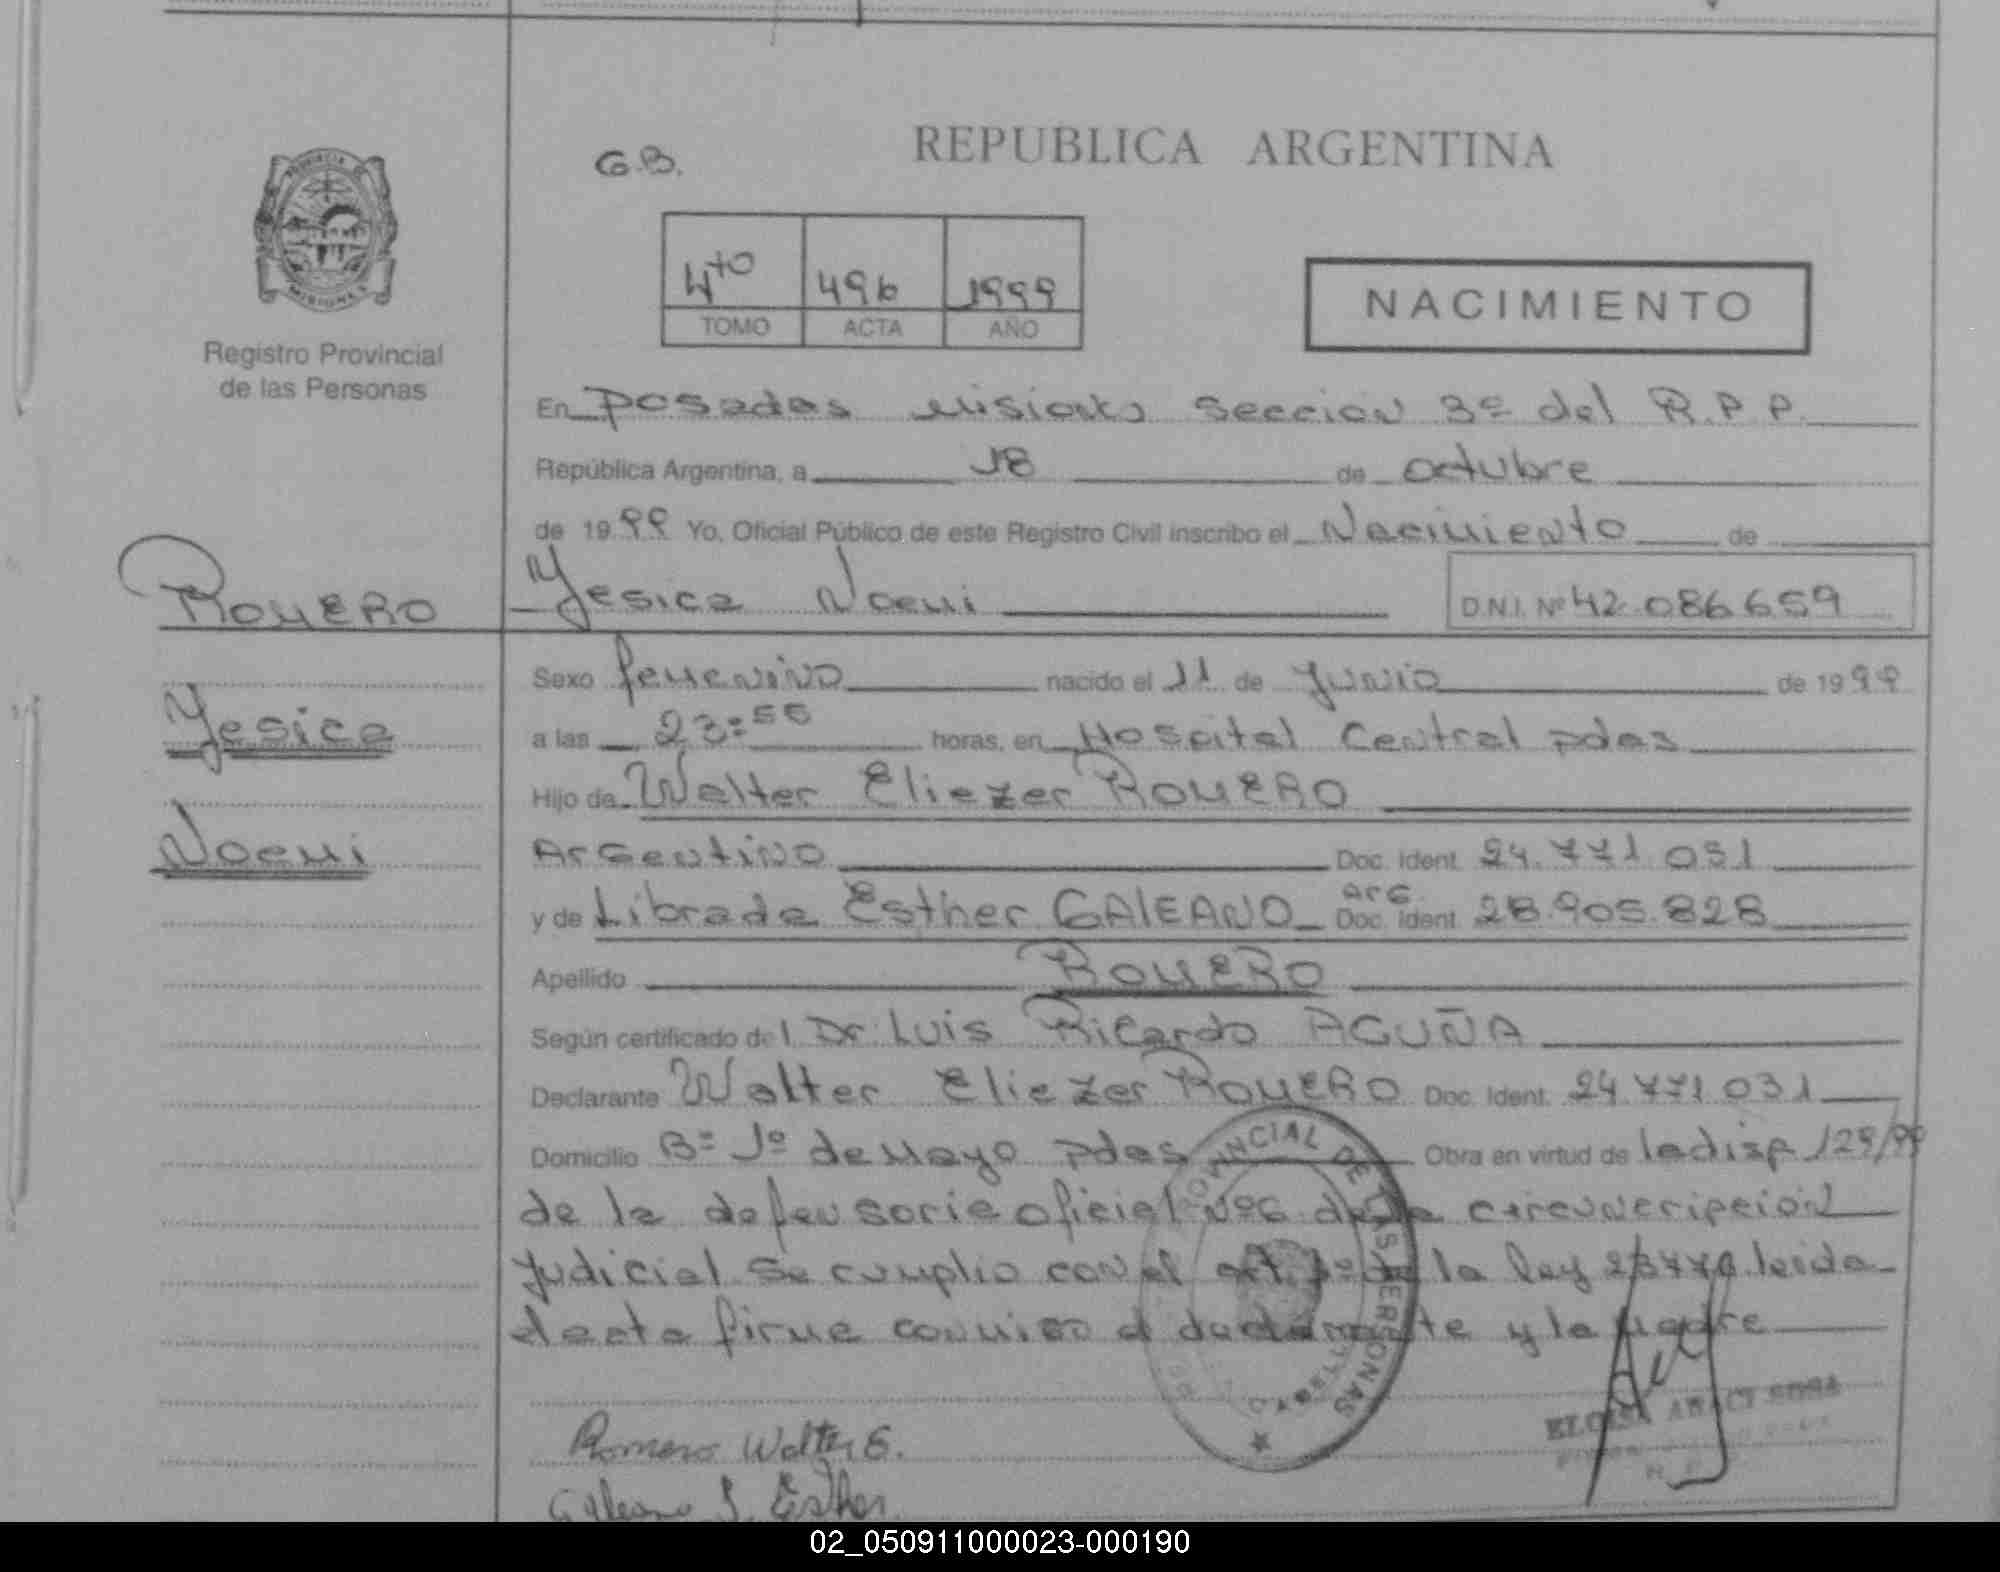 REPUBLICA ARGENTINA
G.B.
4to 496 1999
TOMO ACTA AÑO
NACIMIENTO
PROVINCIA
MISIONES
Registro Provincial
de las Personas
En Posadas Misiones Sección 3º del R.P.P.
República Argentina, a 18 de octubre
de 1999 Yo, Oficial Público de este Registro Civil inscribo el Nacimiento de
ROMERO Yesica Noemi D.N.I. Nº 42.086.659
Yesica
Noemi
Sexo femenino nacido el 11 de Junio de 1999
a las 23:55 horas, en Hospital Central pdas
Hijo de Walter Eliezer ROMERO
Argentino Doc. Ident. 24.771.031
y de Librada Esther GALEANO Arg. Doc. Ident. 28.905.828
Apellido ROMERO
Según certificado del Dr. Luis Ricardo ACUÑA
Declarante Walter Eliezer ROMERO Doc. Ident. 24.771.031
Domicilio Bº 1º de Mayo pdas Obra en virtud de la disp 129/99
de la defensoria oficial Nº6 de la circunscripción
Judicial Se cumplio con el art. 1º de la ley 23776 leida
el acta firma conmigo el declarante y la madre
PROVINCIAL DE LAS PERSONAS
Romero Walter E.
Galeano L. Esther
ELOISA ARACI SOSA
02_050911000023-000190